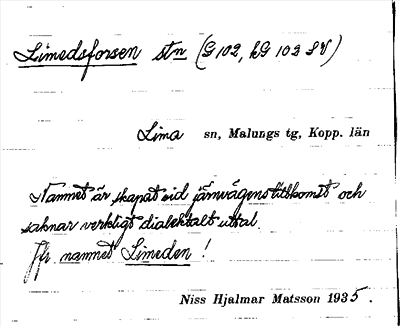 Limedsforsen stn (G 102, kG 102 SV)
Lima sn, Malungs tg, Kopp. län
Namnet är skapat vid järnvägens tillkomst och
saknar verkligt dialektalt uttal.
Jfr namnet Limeden !
Niss Hjalmar Matsson 1935.